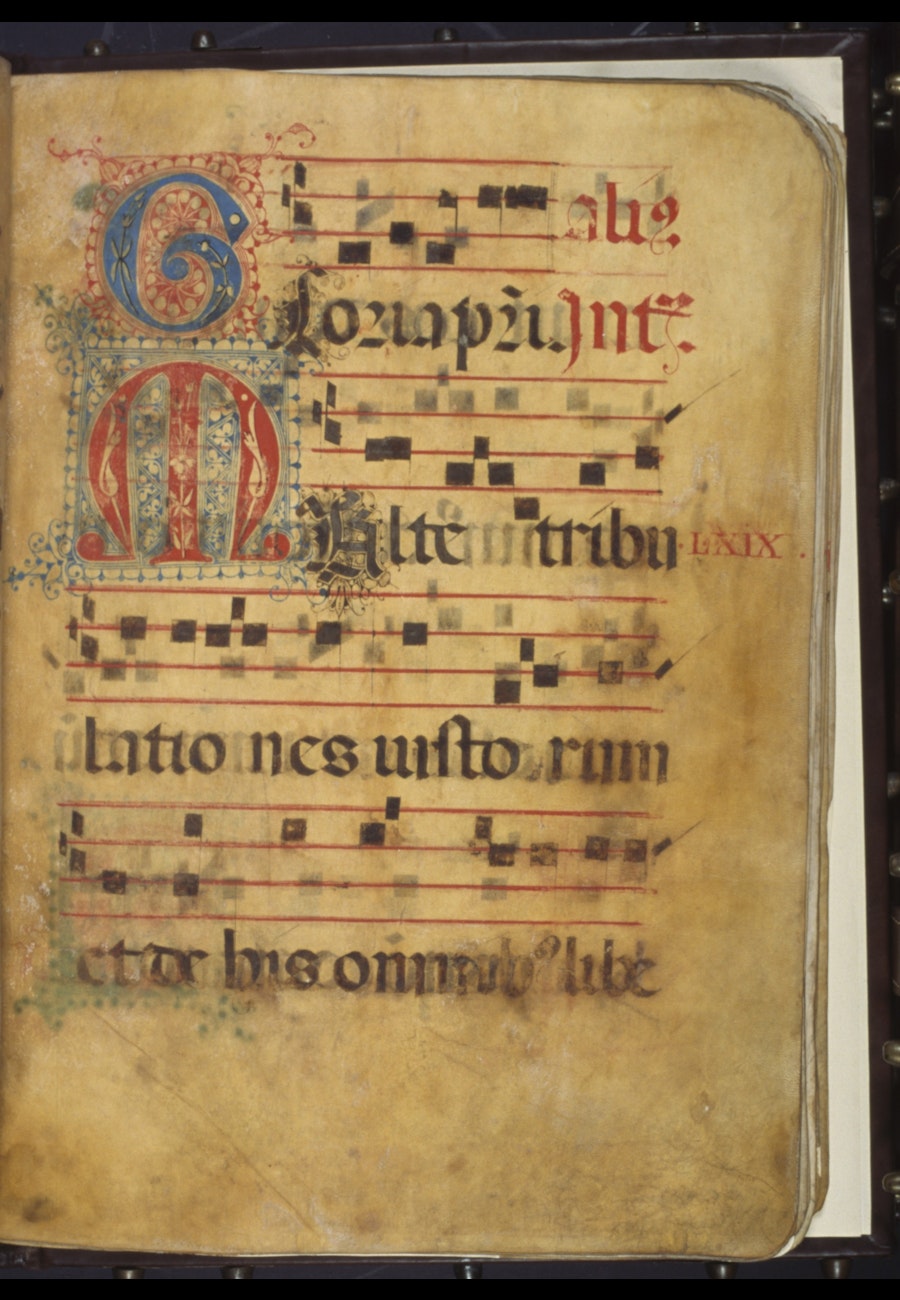 alis
Gloria pr̃i. Int̃.
Multe tribu LXIX.
lationes iusto rum
et de his omnibꝰ libe